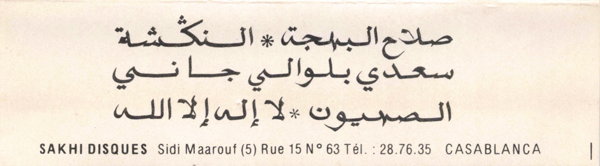 صلاح البهجة * النڭشة
سعدي بلوالي جاني
الصهيون * لا إله إلا الله
SAKHI DISQUES Sidi Maarouf (5) Rue 15 N° 63 Tél. : 28.76.35 CASABLANCA